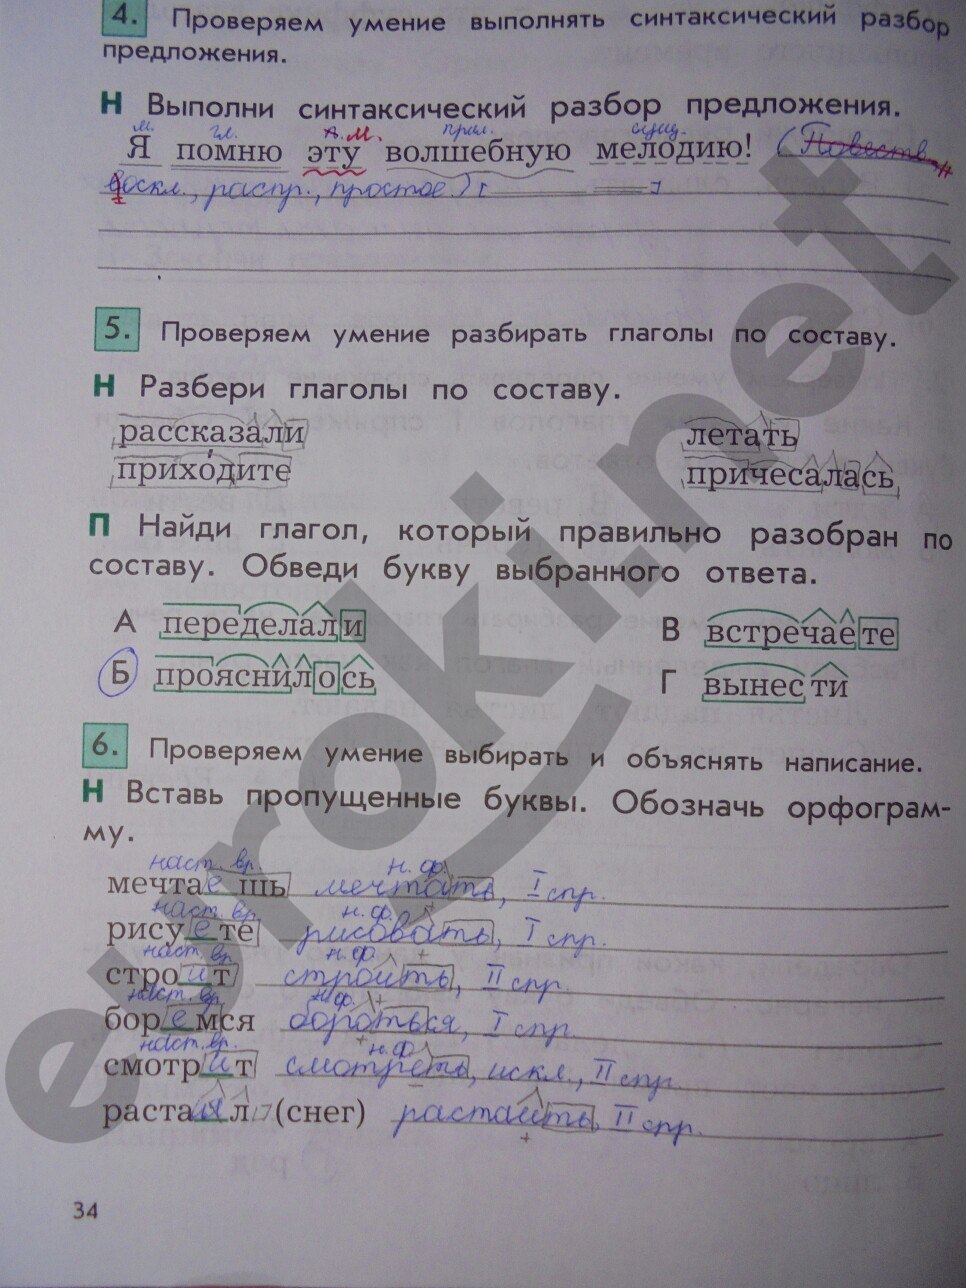 4. Проверяем умение выполнять синтаксический разбор
предложения.
Н Выполни синтаксический разбор предложения.
м. гл. М. прил. сущ.
Я помню эту волшебную мелодию! (Повеств.,
воскл., распр., простое)
5. Проверяем умение разбирать глаголы по составу.
Н Разбери глаголы по составу.
рассказали летать
прихо́дите причесалась
П Найди глагол, который правильно разобран по
составу. Обведи букву выбранного ответа.
А переделали В встречаете
Б прояснилось Г вынести
6. Проверяем умение выбирать и объяснять написание.
Н Вставь пропущенные буквы. Обозначь орфограм-
му.
наст. вр. н. ф.
мечтаешь мечтать, I спр.
наст. вр. н. ф.
рисуете рисовать, I спр.
наст. вр. н. ф.
строит строить, II спр.
наст. вр. н. ф.
боремся бороться, I спр.
наст. вр. н. ф.
смотрит смотреть, искл., II спр.
растаял (снег) растаить, II спр.
34
euroki.net